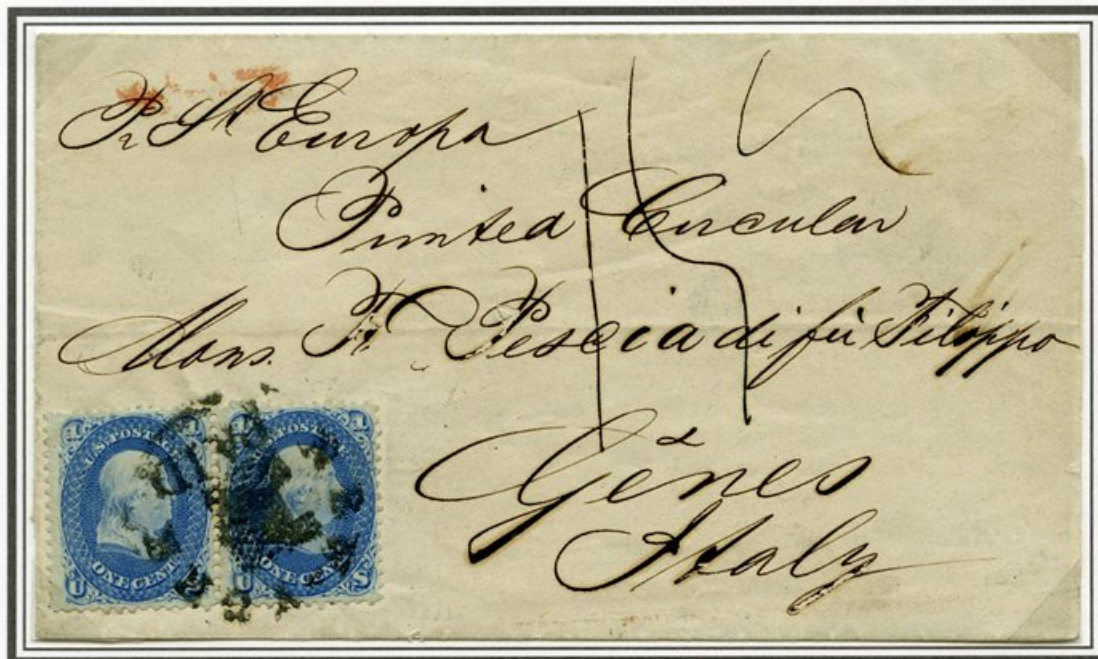 Pr Str Europa
Printed Circular
Mons. F. Pescia di fù Filippo
Gênes
Italy
15
1 U.S. POSTAGE 1
U ONE CENT S
1 U.S. POSTAGE 1
U ONE CENT S
PAID